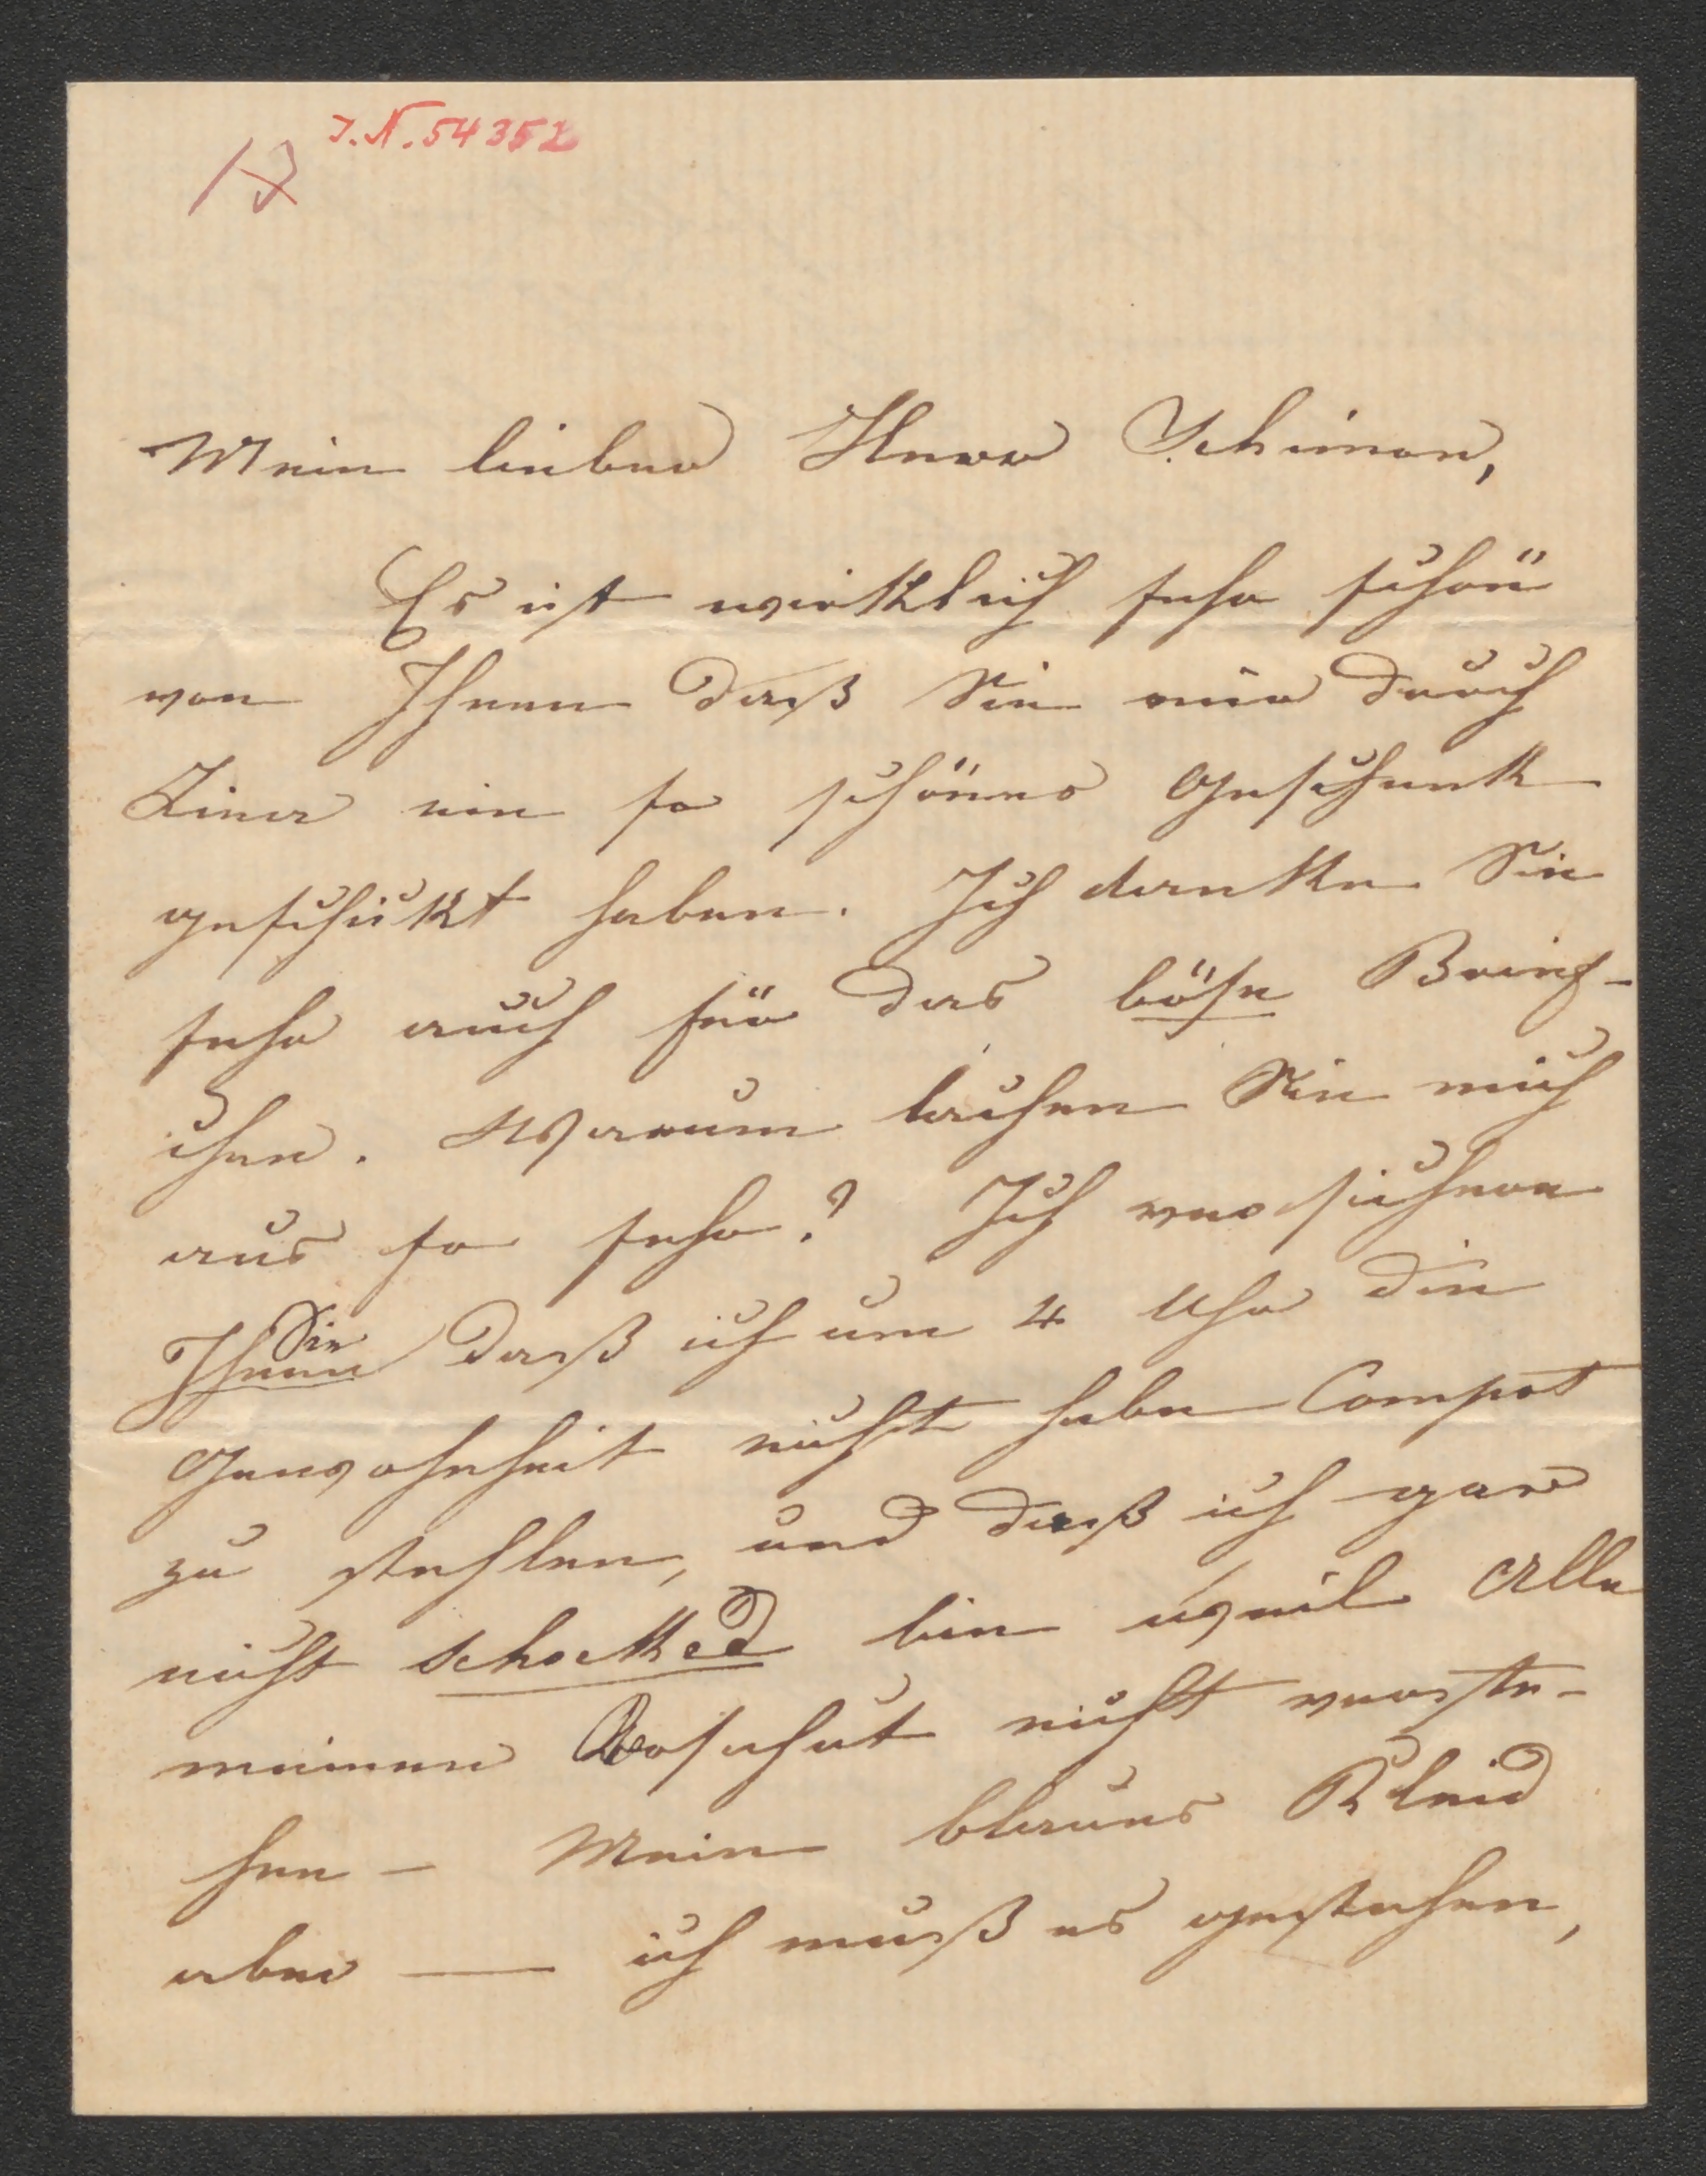 I. N. 54352
Mein lieber Herr Schimon,
Es ist wirklich sehr schön
von Ihnen daß Sie mir durch
ein so schönes Geschenk
geschickt haben. Ich danke Sie
sehr auch für das böse Brief-
chen. Warum lachen Sie mich
aus so sehr? Ich versichere
Ihnen Sie daß ich um 4 Uhr die
Gewohnheit nicht habe Compot
zu stehlen, und daß ich gar
nicht schocked bin weil Alle
meinen nicht verste-
hen – Mein blaues Kleid
aber — ich muß es gestehen,